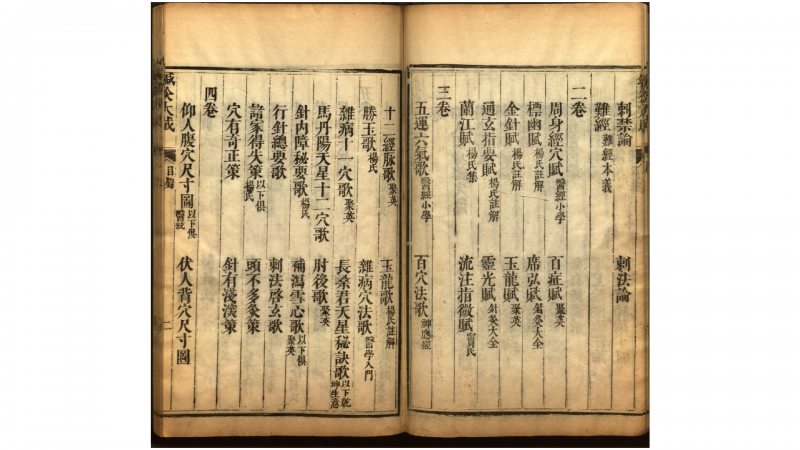 刺禁論 刺法論
難經 難經本義
二卷
周身經穴賦 醫經小學 百症賦 聚英
標幽賦 楊氏註解 席弘賦 鍼灸大全
金針賦 楊氏註解 玉龍賦 聚英
通玄指要賦 楊氏註解 靈光賦 針灸大全
蘭江賦 楊氏集 流注指微賦 竇氏
三卷
五運六氣歌 醫經小學 百穴法歌 神應經
十二經脉歌 聚英 玉龍歌 楊氏註解
勝玉歌 楊氏 雜病穴法歌 醫學入門
雜病十一穴歌 聚英 長桑君天星秘訣歌 以下乾坤生意
馬丹陽天星十二穴歌 肘後歌 聚英
針內障秘要歌 楊氏 補瀉雪心歌 以下俱聚英
行針總要歌 刺法啓玄歌
諸家得失策 以下俱楊氏 頭不多灸策
穴有奇正策 針有淺深策
四卷
仰人腹穴尺寸圖 以下俱醫統 伏人背穴尺寸圖
鍼灸大成 目錄 二